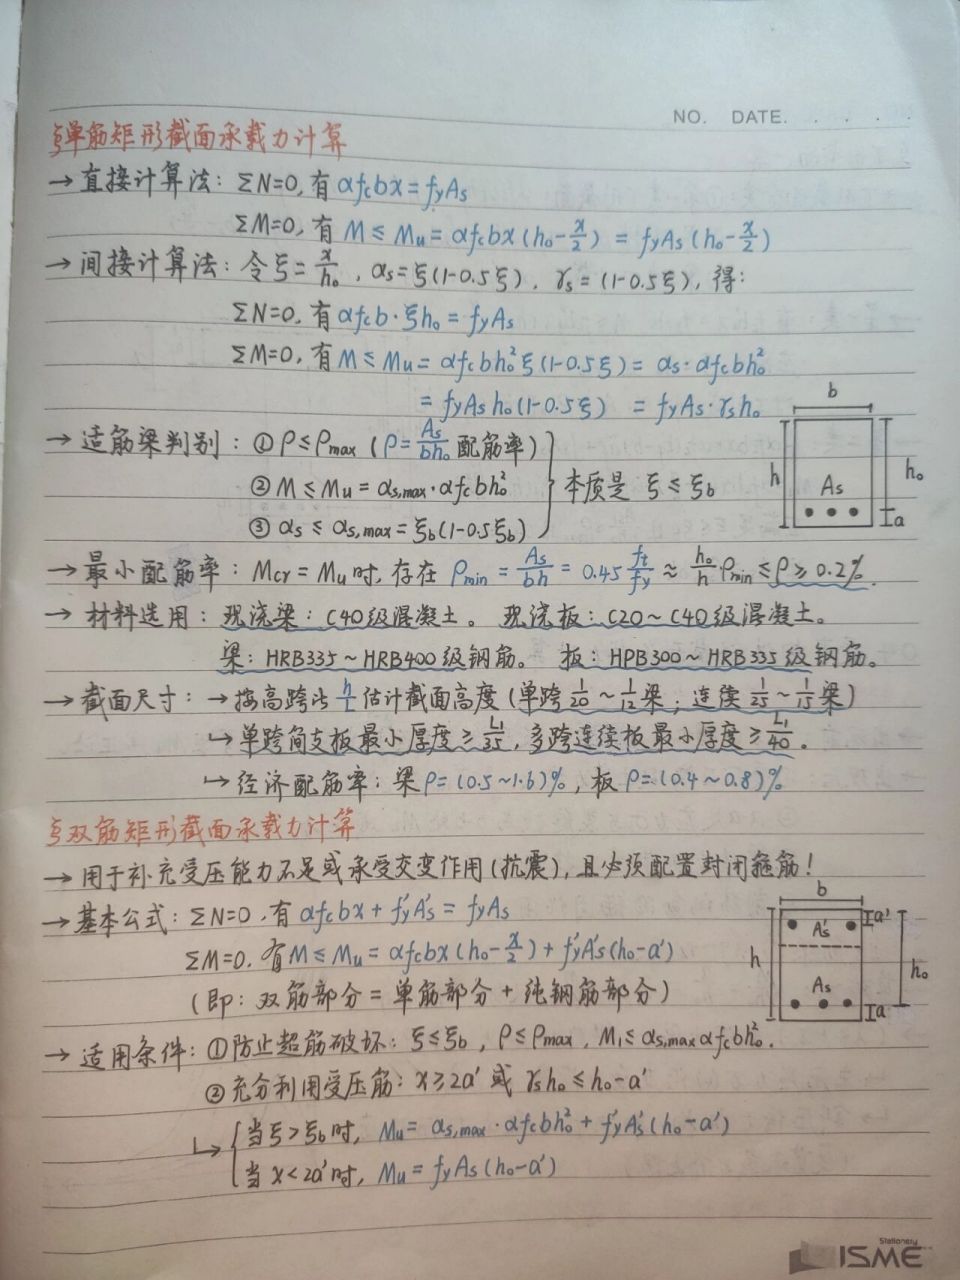 NO. DATE. . . . .
§单筋矩形截面承载力计算
→直接计算法: ΣN=0, 有 αfcbx=fyAs
ΣM=0, 有 M≤Mu=αfcbx(h₀-x/2)=fyAs(h₀-x/2)
→间接计算法: 令ξ=x/h₀, αs=ξ(1-0.5ξ), γs=(1-0.5ξ), 得:
ΣN=0, 有 αfcb·ξh₀=fyAs
ΣM=0, 有 M≤Mu=αfcbh₀²ξ(1-0.5ξ)=αs·αfcbh₀²
=fyAsh₀(1-0.5ξ) =fyAs·γsh₀
→适筋梁判别: ①ρ≤ρmax (ρ=As/bh₀ 配筋率)
②M≤Mu=αs,max·αfcbh₀² 本质是 ξ≤ξb
③αs≤αs,max=ξb(1-0.5ξb)
b
h
As
h₀
a
→最小配筋率: Mcr=Mu时, 存在 ρmin=As/bh=0.45ft/fy≈h₀/h·ρmin≤ρ≥0.2%.
→材料选用: 现浇梁: C40级混凝土。 现浇板: C20~C40级混凝土。
梁: HRB335~HRB400级钢筋。 板: HPB300~HRB335级钢筋。
→截面尺寸: →按高跨比h/L估计截面高度(单跨1/20~1/12梁; 连续1/25~1/15梁)
↳单跨简支板最小厚度≥L₁/35, 多跨连续板最小厚度≥L₁/40.
↳经济配筋率: 梁ρ=(0.5~1.6)%, 板ρ=(0.4~0.8)%
§双筋矩形截面承载力计算
→用于补充受压能力不足或承受交变作用(抗震), 且必须配置封闭箍筋!
→基本公式: ΣN=0, 有 αfcbx+f'yA's=fyAs
ΣM=0. 有M≤Mu=αfcbx(h₀-x/2)+f'yA's(h₀-a')
(即: 双筋部分=单筋部分+纯钢筋部分)
b
A's
a'
h
As
h₀
a
→适用条件: ①防止超筋破坏: ξ≤ξb, ρ≤ρmax, M₁≤αs,maxαfcbh₀².
②充分利用受压筋: x≥2a' 或 γsh₀≤h₀-a'
↳{当ξ>ξb时, Mu=αs,max·αfcbh₀²+f'yA's(h₀-a')
当x<2a'时, Mu=fyAs(h₀-a')
Stationery
ISME